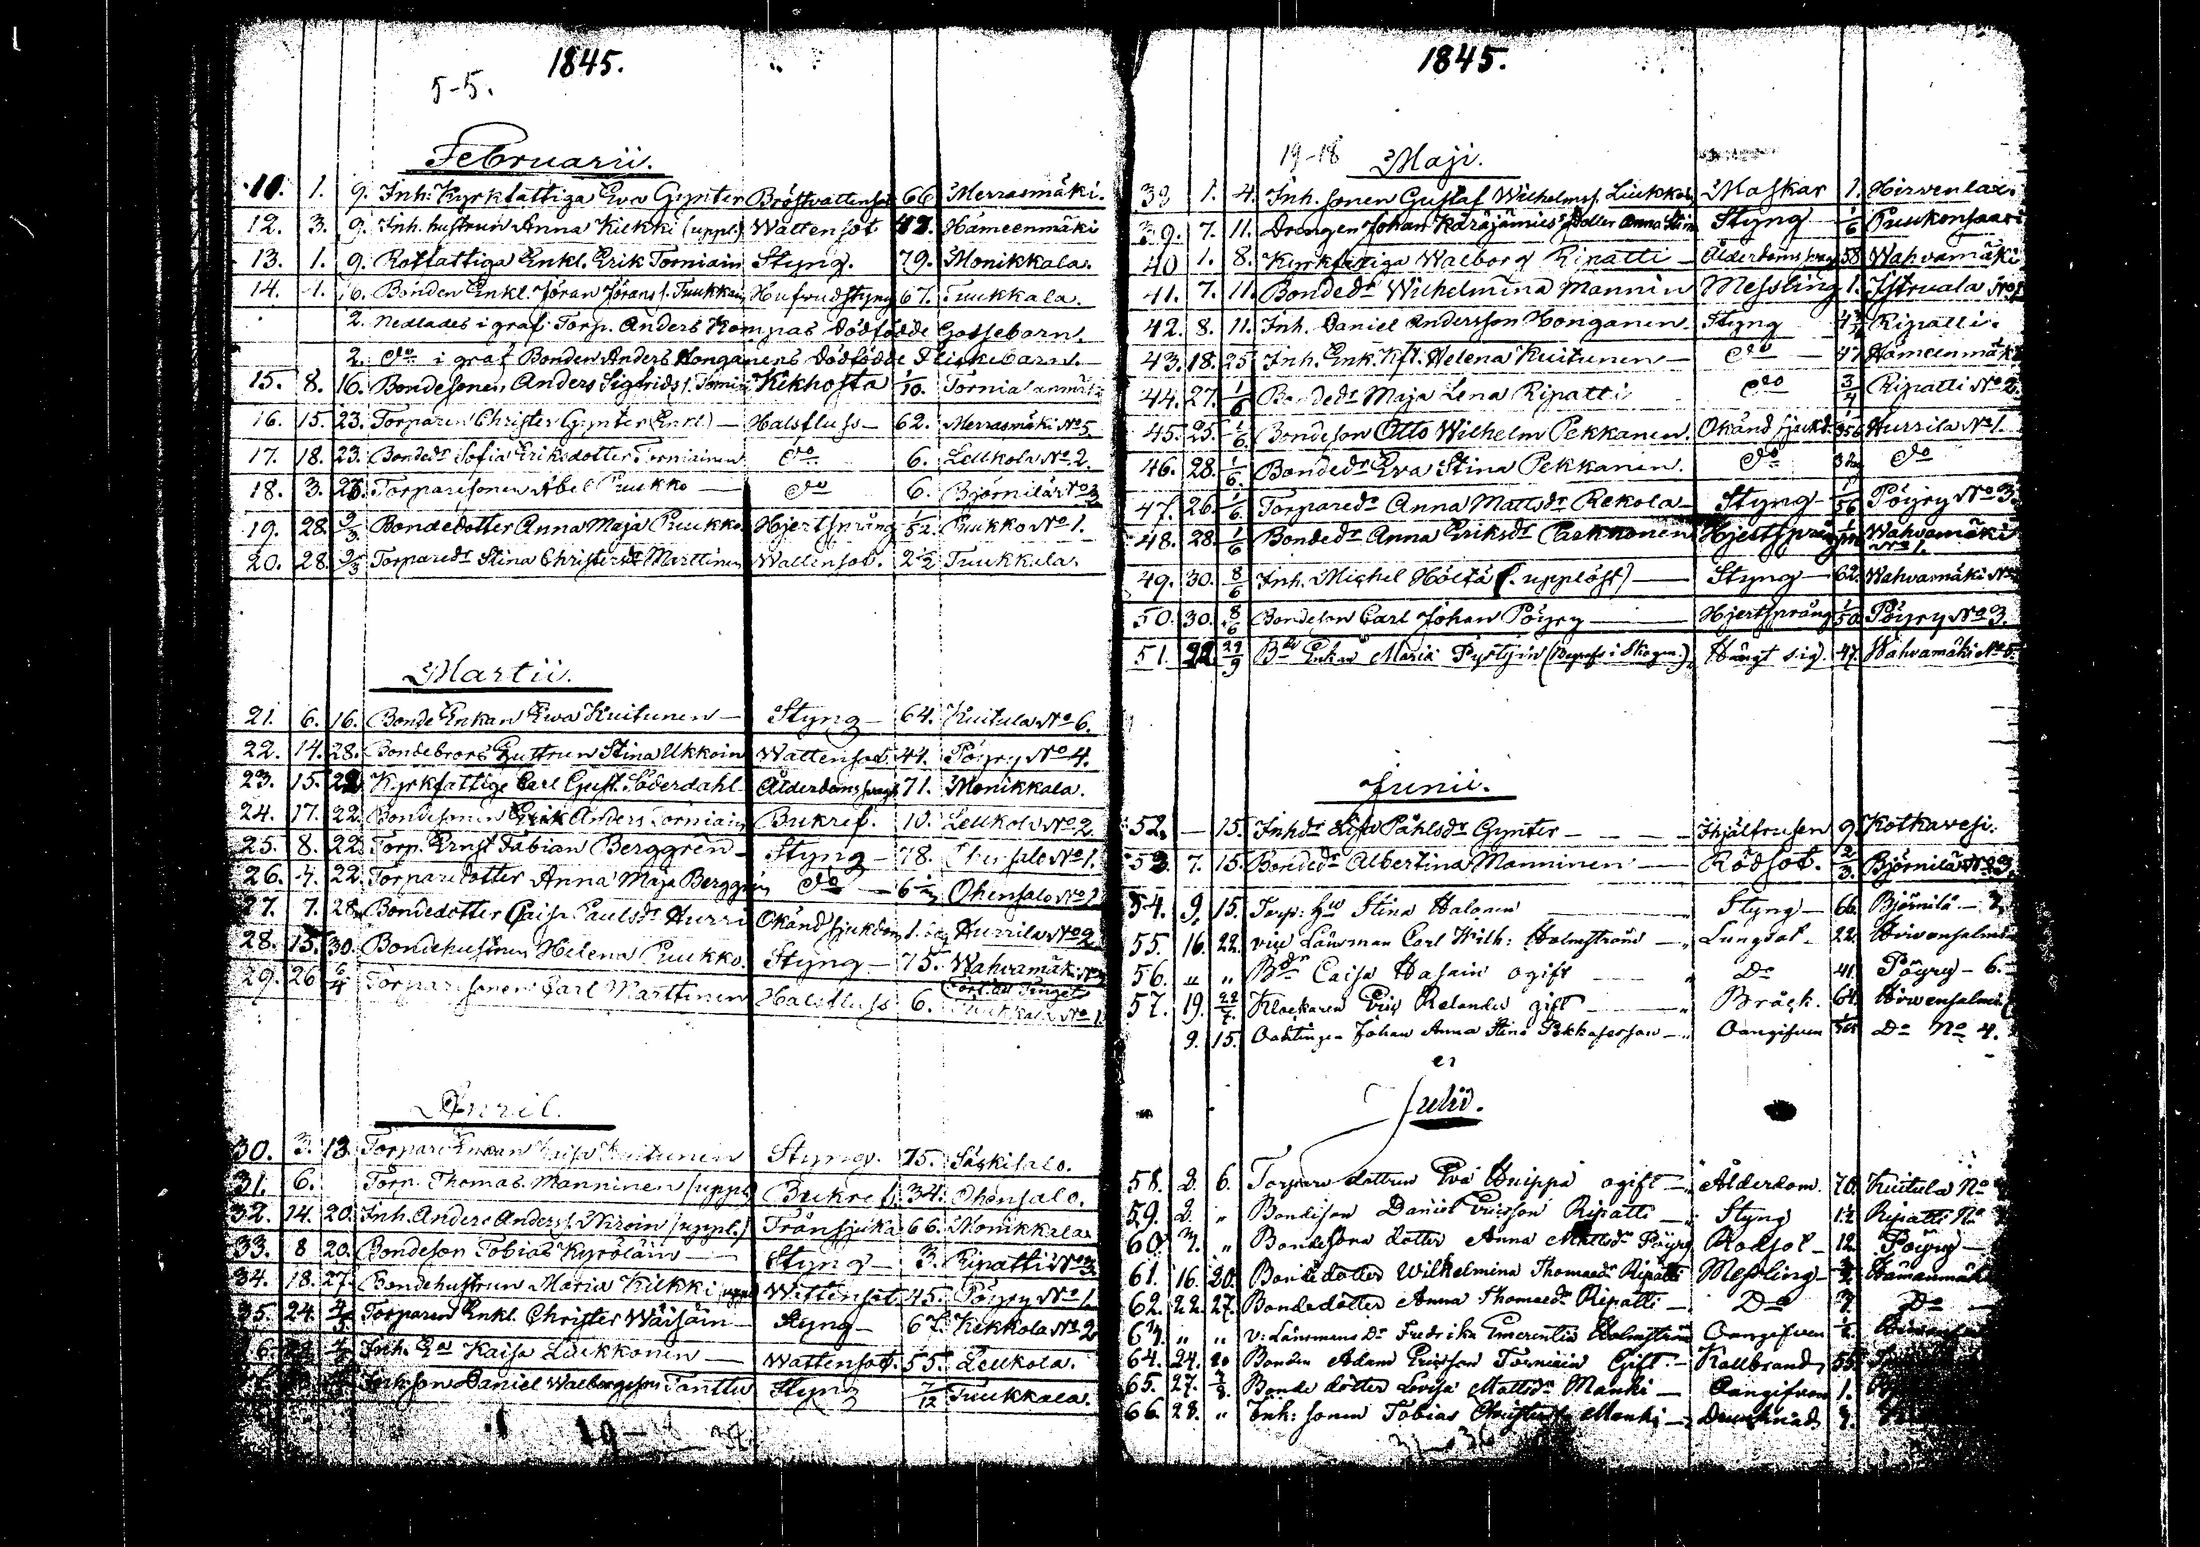 1845.
5-5.
Februarii.
10. 1. 9. Inh. Kyrkfattiga Eva Gynter Bröstvattensot 66 Merrasmäki.
12. 3. 9. Inh. hustrun Anna Kilkki (uppl.) Wattensot 42. Hämeenmäki
13. 1. 9. Rotfattiga Enkl. Erik Torniain Styng. 79. Monikkala.
14. 1. 16. Bonden Enkl. Jöran Jörans f. Tuukkain Hufvudstyng 67. Tuukkala.
2. Nedlades i graf Torp. Anders Kompas Dödfödde Gossebarn.
2. do i graf Bonden Anders Honganens Dödfödde Flickebarn.
15. 8. 16. Bondesonen Anders Sigfrids f. Tornin Kikhosta 1/10.
16. 15. 23. Torparen Christer Gynter (Enkl.) — Halsfluss — 62. Merrasmäki No 5.
17. 18. 23. Bondedr Sofia Eriksdotter Torniainen do 6. Leukola No 2.
18. 3. 23. Torparesonen Abel Puukko — do 6. Björnilä No 3
19. 28. 2/3 Bondedotter Anna Maja Puukko Hjertsprång 1/52. Puukko No 1.
20. 28. 2/3 Torparedr Stina Christersdr Marttinen Wattensot. 2 1/2 Tuukkala.
Martii.
21. 6. 16. Bonde Enkan Ewa Kuitunen — Styng — 64. Kuitula No 6.
22. 14. 28. Bondebrors Hustrun Stina Ukkoin Wattensot. 44. Pöyry No 4.
23. 15. 22 Kyrkfattige Carl Gust. Söderdahl — Ålderdomssvagh 71. Monikkala.
24. 17. 22. Bondesonen Erik Anders Torniain Bukref. 10. Leukola No 2.
25. 8. 22. Torp. Ernst Fabian Berggrén — Styng — 78. Ohensalo No 1.
26. 4. 22. Torparedotter Anna Maja Berggrén do — 6 Ohensalo No 1
27. 7. 28. Bondedotter Caisa Paulsdr Hurri Okänd sjukdom 1. Hurrila No 2
28. 15. 30. Bondehustrun Helena Puukko. Styng — 75. Wahvamäki No
29. 26 6/4 Torparesonen Carl Marttinen Halsfluss 6. Tuukkala No 1
April.
30. 3. 13. Torpare Enkan Kaisa Kuitunen Styng. 75. Säskisalo.
31. 6. Torp. Thomas Manninen (uppl.) Bukref. 34. Ohensalo.
32. 14. 20. Inh. Anders Anders f. Ukkoin (uppl.) Trånsjuka 66. Monikkala.
33. 8 20. Bondeson Tobias Kyröläin — Styng — 3. Ripatti No 3
34. 18. 27. Bondehustrun Maria Kilkki (uppl Wattensot 45. Pöyry No 1.
35. 24. 4/5 Torparen Enkl. Christer Wäisäin — Styng — 67. Kekkola No 2
Inh. Kaisa Liukkonen — Wattensot. 55. Leukola.
Inh. son Daniel Walborgsson Tanttu Styng 7/12 Tuukkala.
1845.
19-18 Maji.
33 1. 4. Inh. sonen Gustaf Wilhelms f. Liukkoin Maskar 1. Hirvenlax.
39. 7. 11. Drengen Johan Käräjämies Dotter Anna Stina Styng 1/6 Puukonsaari
40 1. 8. Kyrkfattiga Walborg Ripatti — Ålderdomssvag 58 Wahvamäki
41. 7. 11. Bondedr Wilhelmina Mannin Messling 1. Istruala No
42. 8. 11. Inh. Daniel Andersson Honganen — Styng Ripatti.
43. 18. 25 Inh. Enk. Kf. Helena Kuitunen — do — 47 Hämeenmäki
44. 27. 1/6 Bondedr Maja Lena Ripatti do 3/4 Ripatti No 2.
45. 25. 1/6. Bondeson Otto Wilhelm Pekkanen. Okänd sjukd. Hurrila No 1.
46. 28. 1/6. Bondedr Eva Stina Pekkanen. do do
47. 26. 1/6 Torparedr Anna Mattsdr Rekola — Styng 1/56 Pöyry No 3.
48. 28. 1/6 Bondedr Anna Eriksdr Paukkonen Hjertsprång Wahvamäki No 1.
49. 30. 8/6 Inh. Michel Höltä (. upplöst) — Styng — 62. Wahvamäki No
50. 30. 8/6 Bondeson Carl Johan Pöyry — Hjertsprång 1/50 Pöyry No 3.
51. 22 Enkan Maria Pyrhjin (Begrafs i Skogen.) Hängt sig. 47. Wahvamäki No 5.
Junii.
52. — 15. Inhdr Lisa Påhlsdr Gynter — — — Ihjälfrusen 9. Kotkavesi.
53. 7. 15. Bondedr Albertina Manninen — Rödsot. 2/3. Björnilä No 3.
54. 9. 15. Torp: hu Stina Halonen — Styng — 66. Björnilä — 7.
55. 16. 22. vice Länsman Carl Wilh: Holmström — Lungsot — 22. Hirvensalmi
56. " " Bdr Caisa Hasain ogift — Do 41. Pöyry — 6.
57. 19. 22/7. Klockaren Eric Relander gift — Bråck. 64. Hirvensalmi
9. 15. Oäktingen Johan Anna Stina Pekkasesson — Oangifven Do No 4.
Julii.
58. 2. 6. Torpare dottren Eva Huippa ogift — Ålderdom. 70. Kuitula No
59. 2. " Bondeson Daniel Ericsson Ripatti — Styng 12 Ripatti No
60. 7. " Bondesons dotter Anna Mattsdr Pöyry Rödsot — 12 Pöyry —
61. 16. 20. Bondedotter Wilhelmina Thomasdr Ripatti Messling —
62. 22. 27. Bondedotter Anna Thomasdr Ripatti — Do Do
63. " " v: Länsmans Dr Fredrika Emerentia Holmström Oangifven
64. 24. 20 Bonden Adam Ericsson Torniain Gift. — Kallbrand 55.
65. 27. Bonde dotter Lovisa Mattsdr Manki — Oangifven 1.
66. 28. " Inh: sonen Tobias Manki — Drunknad